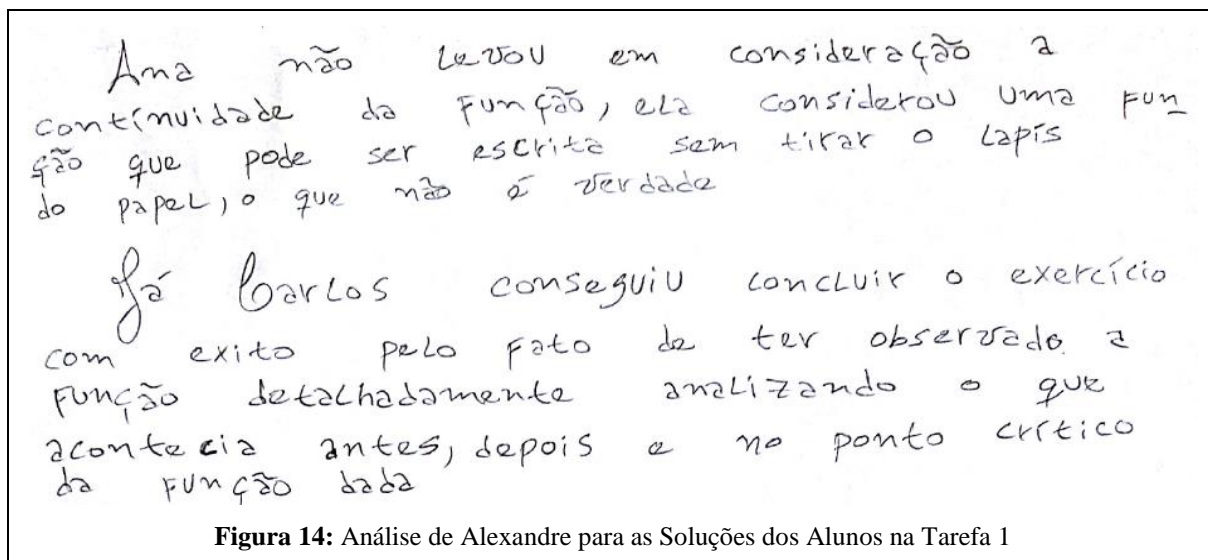 Ana não levou em consideração a
continuidade da função, ela considerou uma fun
ção que pode ser escrita sem tirar o lapís
do papel, o que não é verdade
Já Carlos conseguiu concluir o exercício
com exito pelo fato de ter observado a
função detalhadamente analizando o que
acontecia antes, depois e no ponto crítico
da função dada
Figura 14: Análise de Alexandre para as Soluções dos Alunos na Tarefa 1